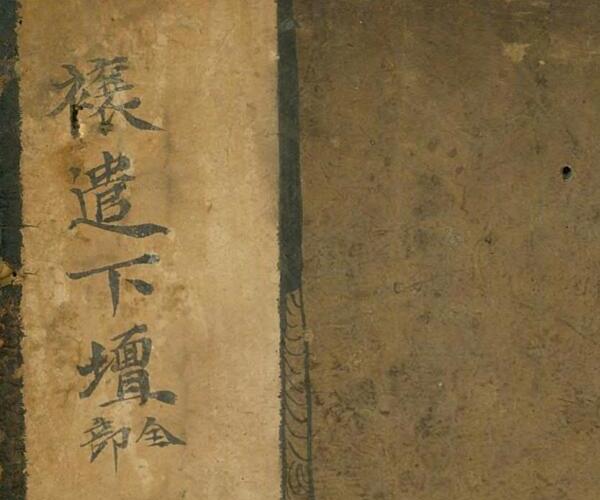 禳遣下壇
全部